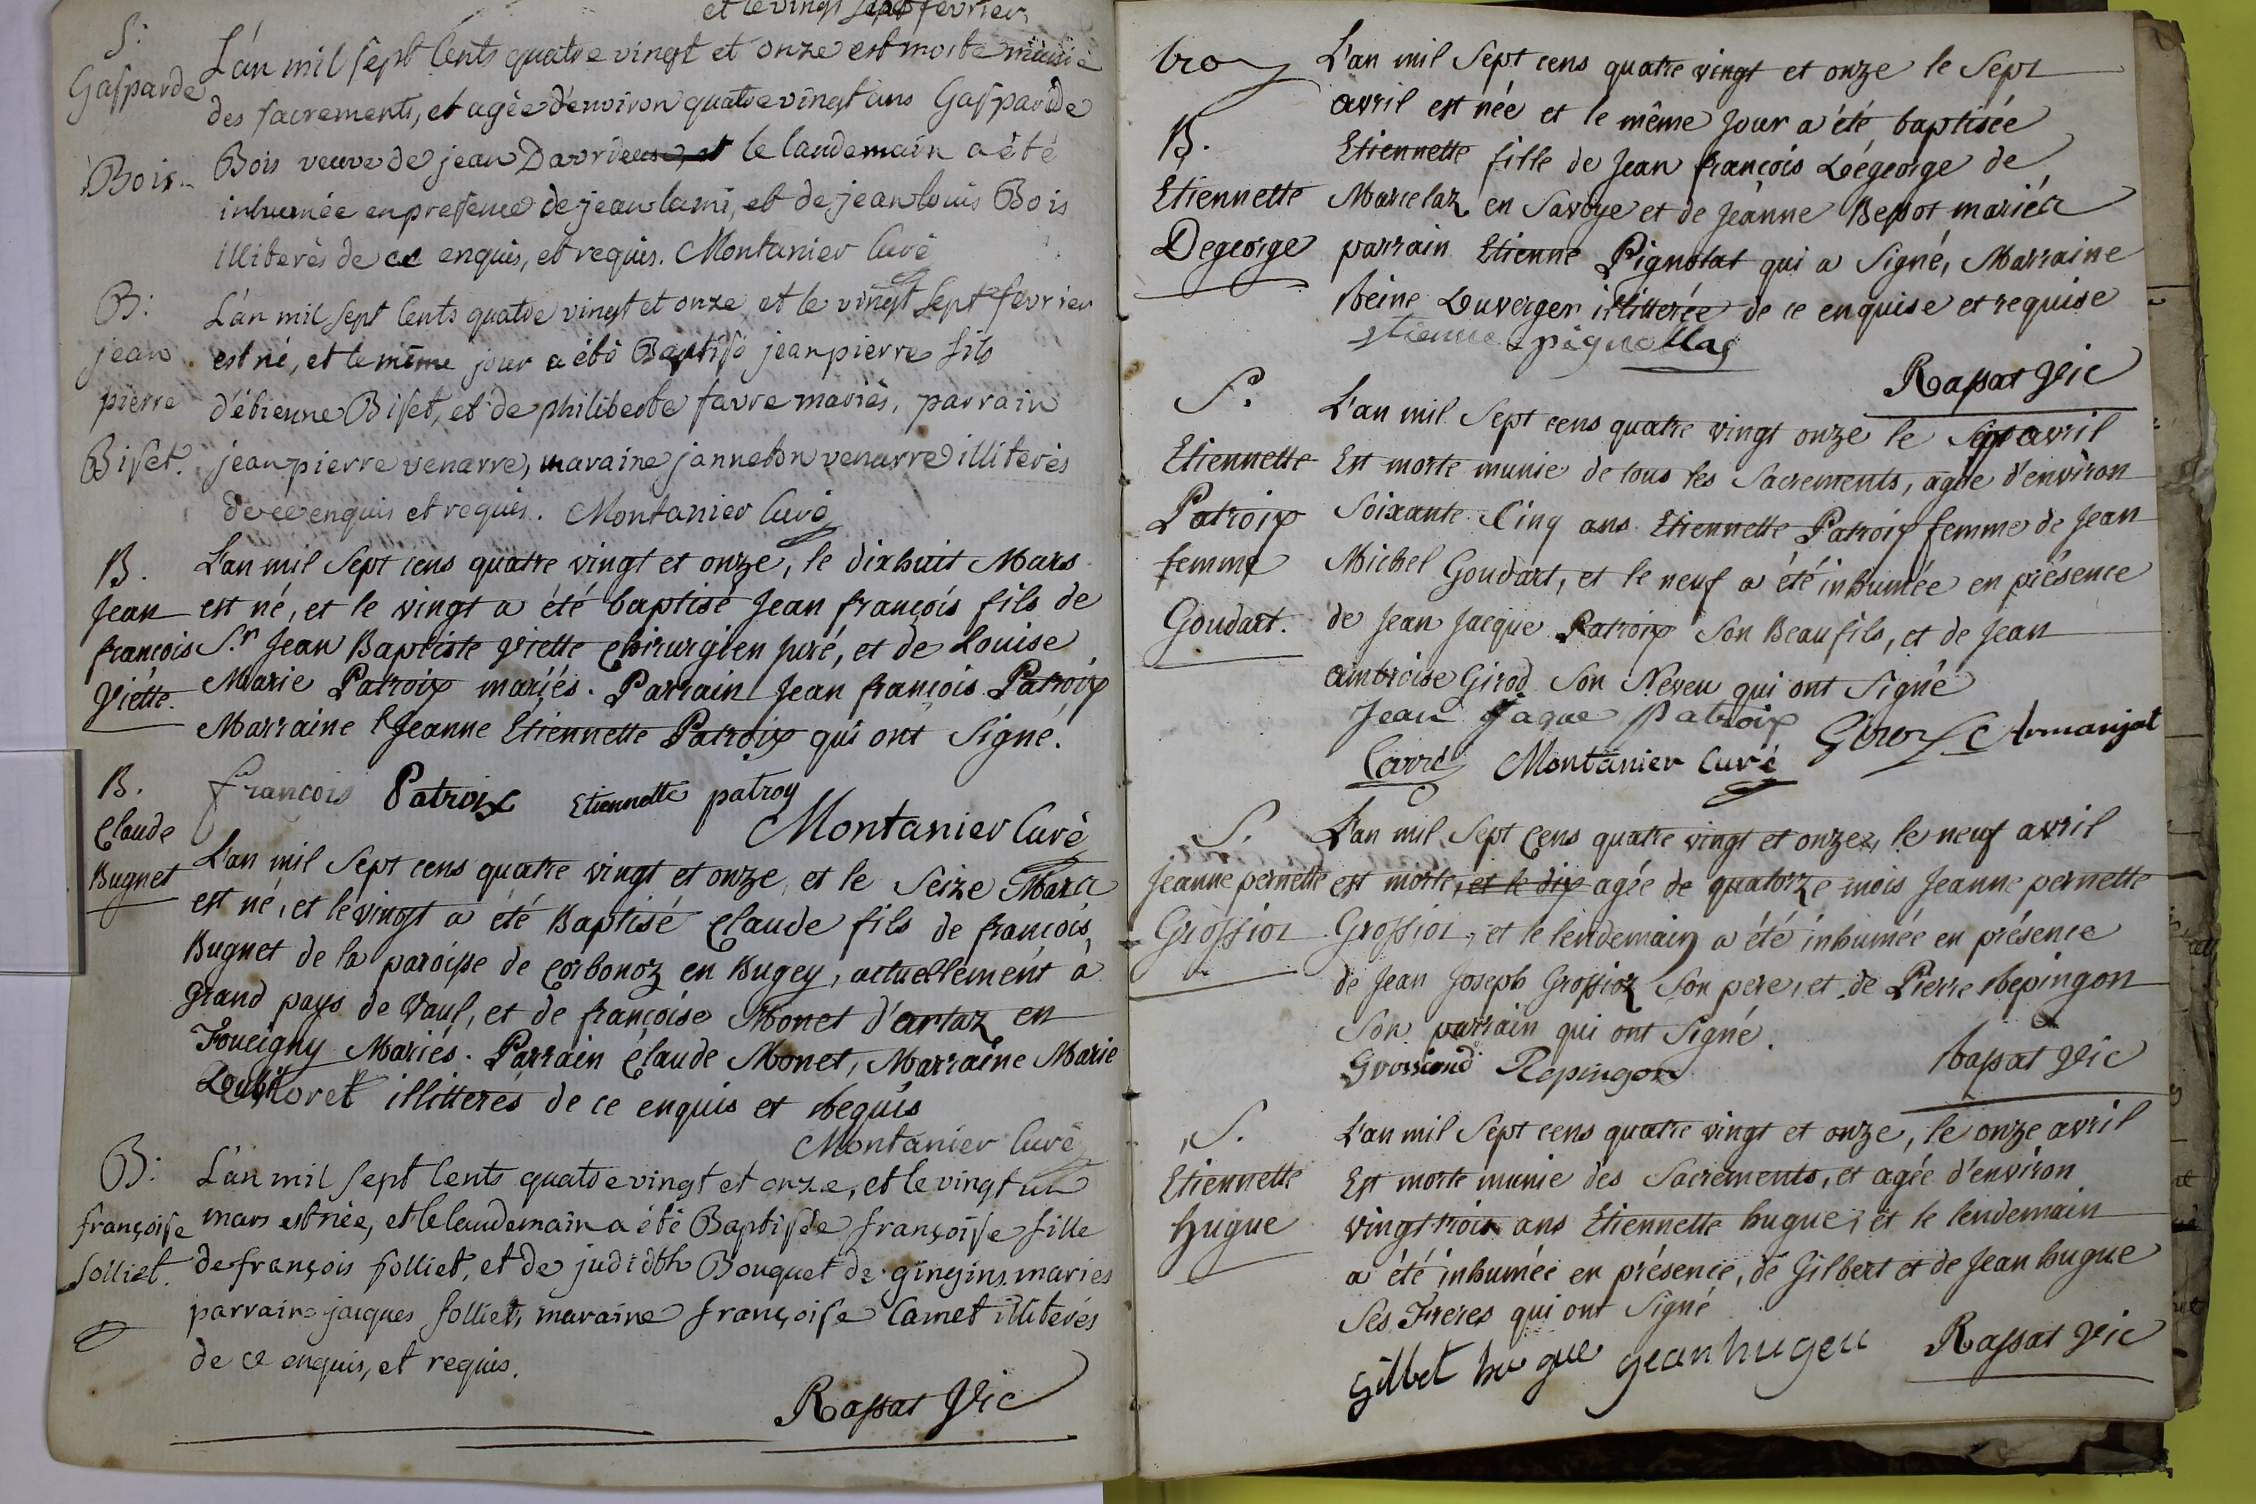 et le vingt sept fevrier
S:
Gasparde
Bois.
L'an mil sept Cents quatre vingt et onze est morte munie
des sacrements, et agée d'environ quatre vingt ans Gasparde
Bois veuve de jean le laudemain a été
inhumée en presence de jean lami, et de jean louis Bois
illiterés de ce enquis, et requis. Montanier Curé
B:
jean
pierre
Biset.
L'an mil sept Cents quatre vingt et onze et le vingt sept fevrier
est né, et le même jour a été Baptisé jean pierre fils
d'étienne Biset, et de philiberte favre mariés, parrain
jean pierre venarre, maraine janneton venarre illiterés
de ce enquis et requis. Montanier Curé
B.
Jean
françois
Viette.
L'an mil Sept cens quatre vingt et onze, le dixhuit Mars
est né, et le vingt a été baptisé Jean françois fils de
S.r Jean Baptiste Viette Chirurgien juré, et de Louise
Marie Patroix mariés. Parrain Jean françois Patroix
Marraine Jeanne Etiennette Patroix qui ont Signé.
françois Patroix Etiennette patroy
Montanier Curé
B.
Claude
Bugnet
L'an mil Sept cens quatre vingt et onze, et le Seize Mars
est né, et le vingt a été Baptisé Claude fils de françois
Bugnet de la paroisse de Corbonoz en Bugey, actuellement à
Grand pays de Vaul, et de françoise Monet d'artaz en
Foucigny Mariés. Parrain Claude Monet, Marraine Marie
illitterés de ce enquis et Requis
Montanier Curé
B:
françoise
folliet.
L'an mil sept Cents quatre vingt et onze, et le vingt un
mars est née, et le laudemain a été Baptisée françoise fille
de françois folliet, et de judidth Bouquet de gingins mariés
parrain jacques folliet, maraine françoise Camet illiterés
de ce enquis, et requis.
Rassat Vic
B.
Etiennette
Degeorge
L'an mil Sept cens quatre vingt et onze le Sept
avril est née et le même jour a été baptisée
Etiennette fille de Jean françois Dégeorge de
Marcelaz en Savoye et de Jeanne Bessot mariés
parrain Etienne Pignolat qui a Signé, Marraine
Reine Duverger illitterée de ce enquise et requise
etienne pignollas
Rassat Vic
S.
Etiennette
Patroix
femme
Goudart.
L'an mil Sept cens quatre vingt onze le Sept avril
Est morte munie de tous les Sacrements, agée d'environ
Soixante Cinq ans Etiennette Patroix femme de Jean
Michel Goudart, et le neuf a été inhumée en présence
de Jean Jacque Patroix Son Beaufils, et de Jean
ambroise Girod Son Neveu qui ont Signé
Jean Jaque Patroix
Carré Montanier Curé Girod Armanjat
S.
Jeanne pernette
Grossior
L'an mil Sept Cens quatre vingt et onze, le neuf avril
est morte, et le dix agée de quatorze mois Jeanne pernette
Grossior, et le lendemain a été inhumée en présence
de Jean Joseph Grossior Son pere, et de Pierre Repingon
Son parrain qui ont Signé.
Repingon
Rassat Vic
S.
Etiennette
hugue
L'an mil Sept cens quatre vingt et onze, le onze avril
Est morte munie des Sacrements, et agée d'environ
vingt trois ans Etiennette hugue, et le lendemain
a été inhumée en présence, de Gilbert et de Jean hugue
Ses Freres qui ont Signé
Gilbet hugue jean hugeu
Rassat Vic